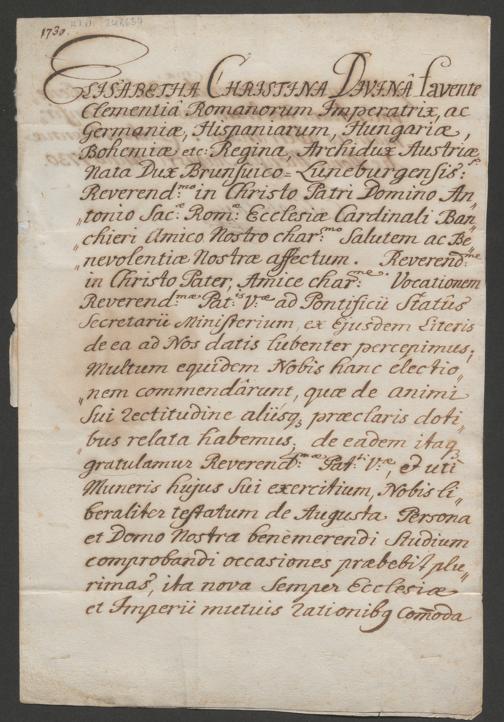 1730.
ELISABETHA CHRISTINA DIVINÂ favente
Clementiâ Romanorum Imperatrix, ac
Germaniæ, Hispaniarum, Hungariæ,
Bohemiæ etc: Regina, Archidux Austriæ,
Nata Dux Brunsuico=Luneburgensis:
Reverend:mo in Christo Patri Domino An„
„tonio Sac:æ Rom:æ Ecclesiæ Cardinali Ban„
„chieri Amico Nostro char:mo Salutem ac Be„
„nevolentiæ Nostræ affectum. Reverend:me
in Christo Pater, Amice char:me. Vocationem
Reverend:mæ Pat:tis V:æ ad Pontificii Statûs
Secretarii Ministerium, ex ejusdem Literis
de ea ad Nos datis lubenter percepimus;
Multum equidem Nobis hanc electio„
„nem commendârunt, quæ de animi
sui rectitudine aliisq; præclaris doti„
bus relata habemus; de eadem itaq;
gratulamur Reverend:mæ Pat:ti V:æ, et uti
Muneris hujus sui exercitium, Nobis li„
beraliter testatum de Augusta Persona
et Domo Nostra benemerendi studium
comprobandi occasiones præbebit plu„
rimas, ita nova semper Ecclesiæ
et Imperii mutuis rationibq com̄oda